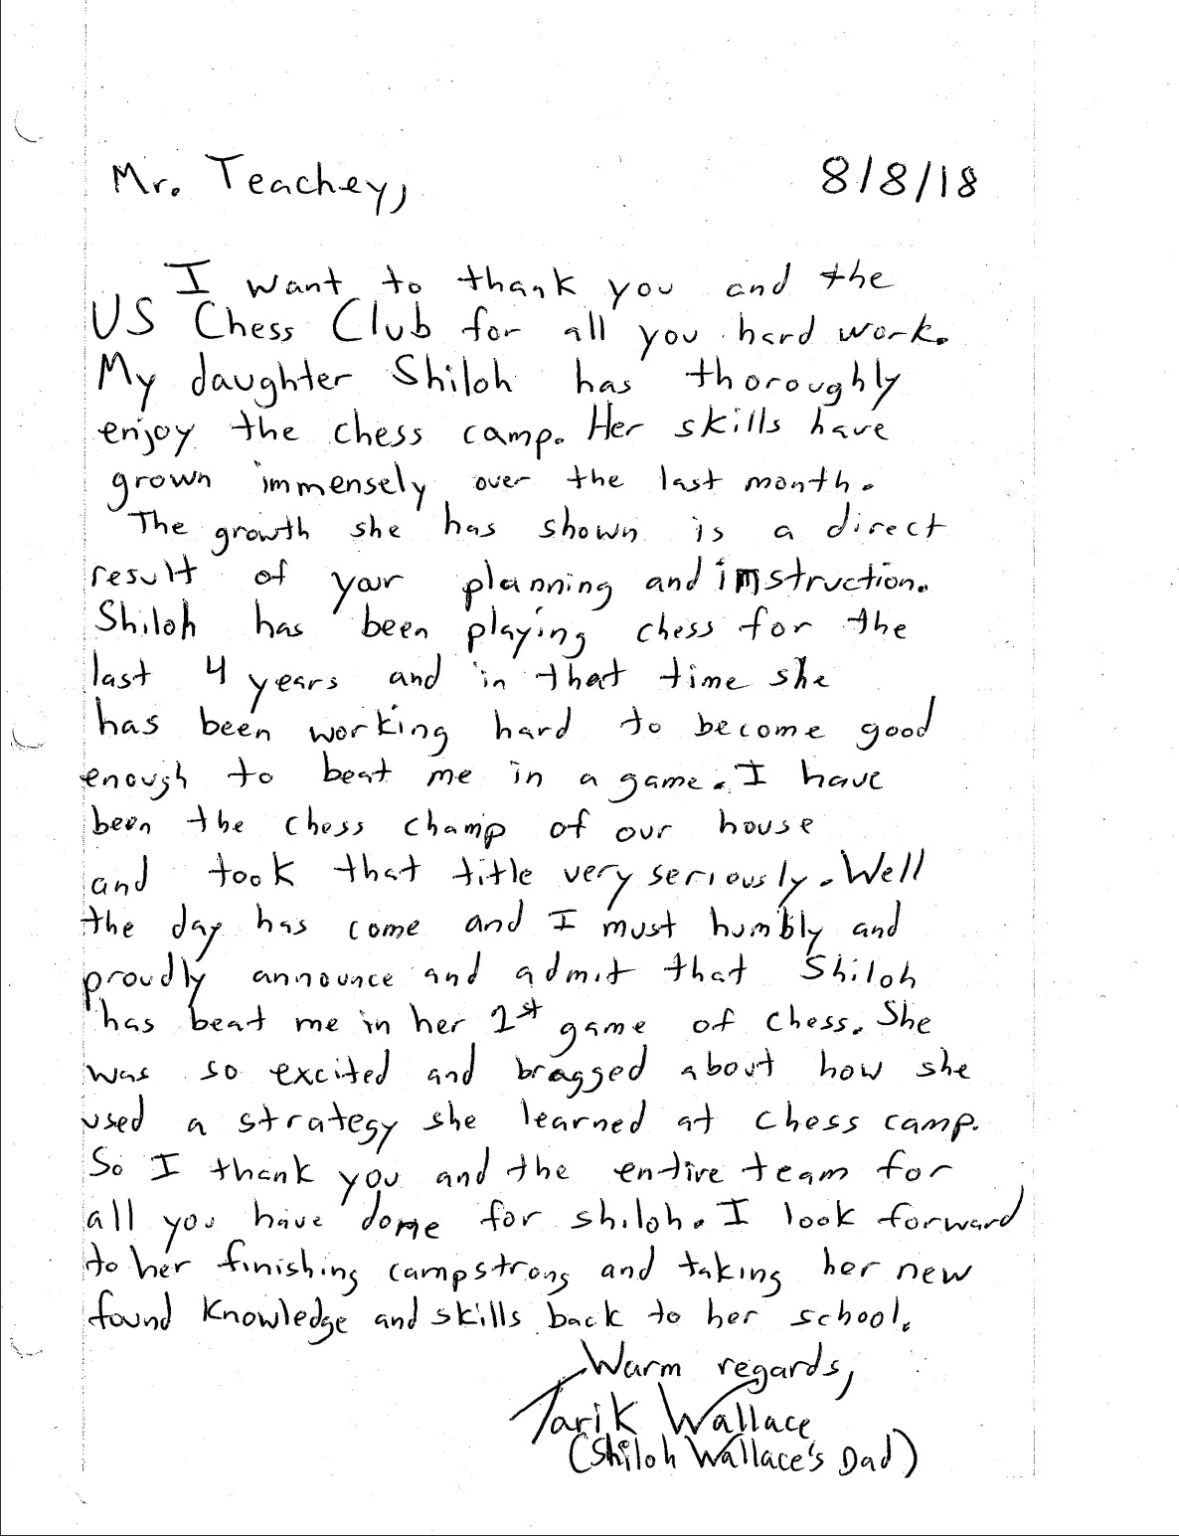 Mr. Teachey, 8/8/18
I want to thank you and the
US Chess Club for all you hard work.
My daughter Shiloh has thoroughly
enjoy the chess camp. Her skills have
grown immensely over the last month.
The growth she has shown is a direct
result of your planning and imstruction.
Shiloh has been playing chess for the
last 4 years and in that time she
has been working hard to become good
enough to beat me in a game. I have
been the chess champ of our house
and took that title very seriously. Well
the day has come and I must humbly and
proudly announce and admit that Shiloh
has beat me in her 1st game of chess. She
was so excited and bragged about how she
used a strategy she learned at chess camp.
So I thank you and the entire team for
all you have done for shiloh. I look forward
to her finishing camp strong and taking her new
found knowledge and skills back to her school.
Warm regards,
Tarik Wallace
(Shiloh Wallace's Dad)